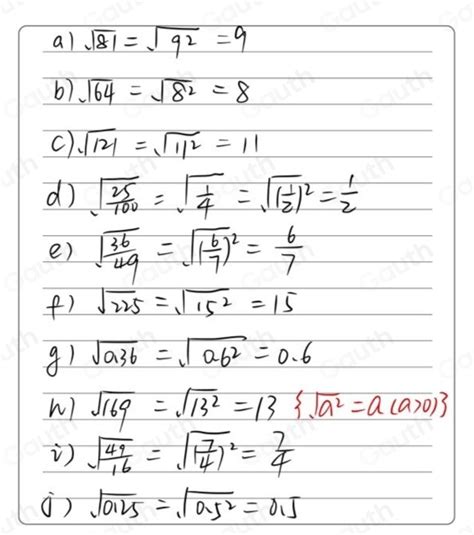 a) √81 = √9² = 9
b) √64 = √8² = 8
c) √121 = √11² = 11
d) √(25/100) = √(1/4) = √(1/2)² = 1/2
e) √(36/49) = √(6/7)² = 6/7
f) √225 = √15² = 15
g) √0.36 = √0.6² = 0.6
h) √169 = √13² = 13 {√a² = a (a>0)}
i) √(49/16) = √(7/4)² = 7/4
j) √0.25 = √0.5² = 0.5
Gauth